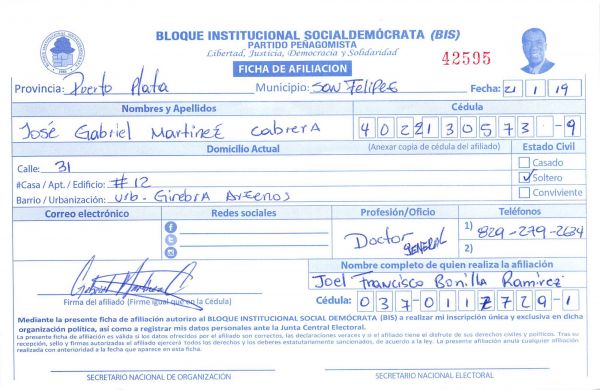 BLOQUE INSTITUCIONAL SOCIALDEMÓCRATA (BIS)
PARTIDO PEÑAGOMISTA
Libertad, Justicia, Democracia y Solidaridad
FICHA DE AFILIACION
42595
Provincia: Puerto Plata Municipio: San Felipes Fecha: 21 1 19
Nombres y Apellidos Cédula
José Gabriel Martinez Cabrera 4022130573-9
Domicilio Actual (Anexar copia de cédula del afiliado) Estado Civil
Calle: 31 Casado
#Casa / Apt. / Edificio: #12 Soltero
Barrio / Urbanización: Urb. Ginebra Arzenos Conviviente
Correo electrónico Redes sociales Profesión/Oficio Teléfonos
Doctor General 1) 829-279-2634
2)
Nombre completo de quien realiza la afiliación
Joel Francisco Bonilla Ramirez
Firma del afiliado (Firme igual que en la Cédula) Cédula: 037-0117729-1
Mediante la presente ficha de afiliación autorizo al BLOQUE INSTITUCIONAL SOCIAL DEMÓCRATA (BIS) a realizar mi inscripción única y exclusiva en dicha
organización política, así como a registrar mis datos personales ante la Junta Central Electoral.
La presente ficha de afiliación es válida si los datos ofrecidos por el afiliado son correctos, las declaraciones veraces y si el afiliado tiene el disfrute de sus derechos civiles y políticos. Tras su
recepción, sello y firmas autorizadas el afiliado ejercerá todos los derechos y los deberes estatutariamente sancionados, de acuerdo a la ley. La presente afiliación anula cualquier afiliación
realizada con anterioridad a la fecha que aparece en esta ficha.
SECRETARIO NACIONAL DE ORGANIZACIÓN SECRETARIO NACIONAL ELECTORAL